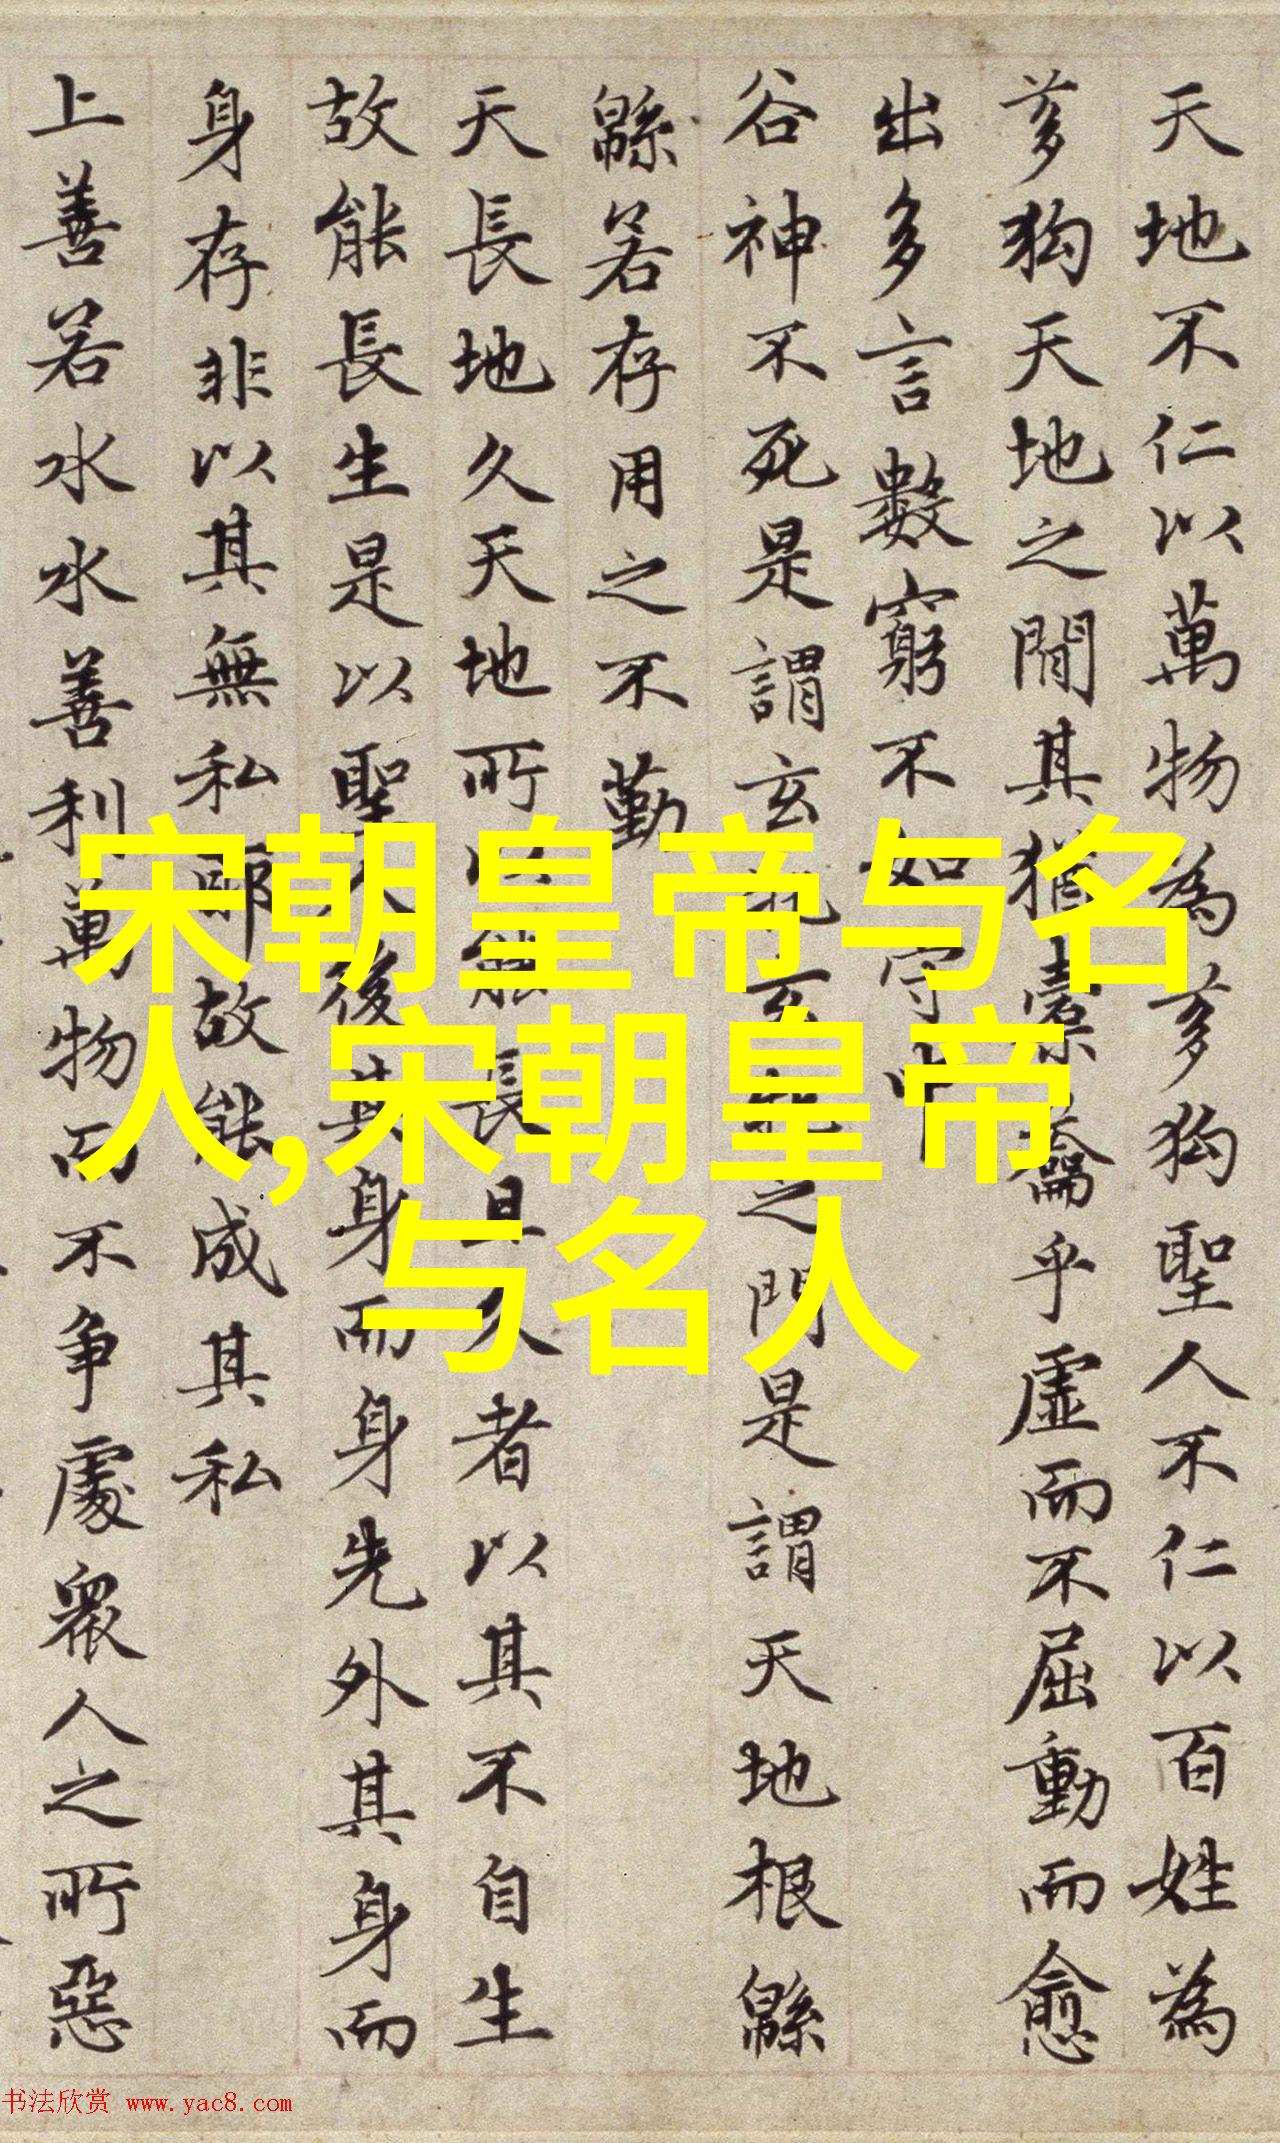 天地不仁以萬物為芻狗聖人不仁以百姓為
芻狗天地之間其猶橐籥乎虛而不屈動而愈
出多言數窮不如守中
谷神不死是謂玄牝玄牝之門是謂天地根緜
緜若存用之不勤
天長地久天地所以能長且久者以其不自生
故能長生是以聖人後其身而身先外其身而
身存非以其無私耶故能成其私
上善若水水善利萬物而不爭處衆人之所惡
宋朝皇帝与名
人,宋朝皇帝
与名人
书法欣赏 www.yac8.com